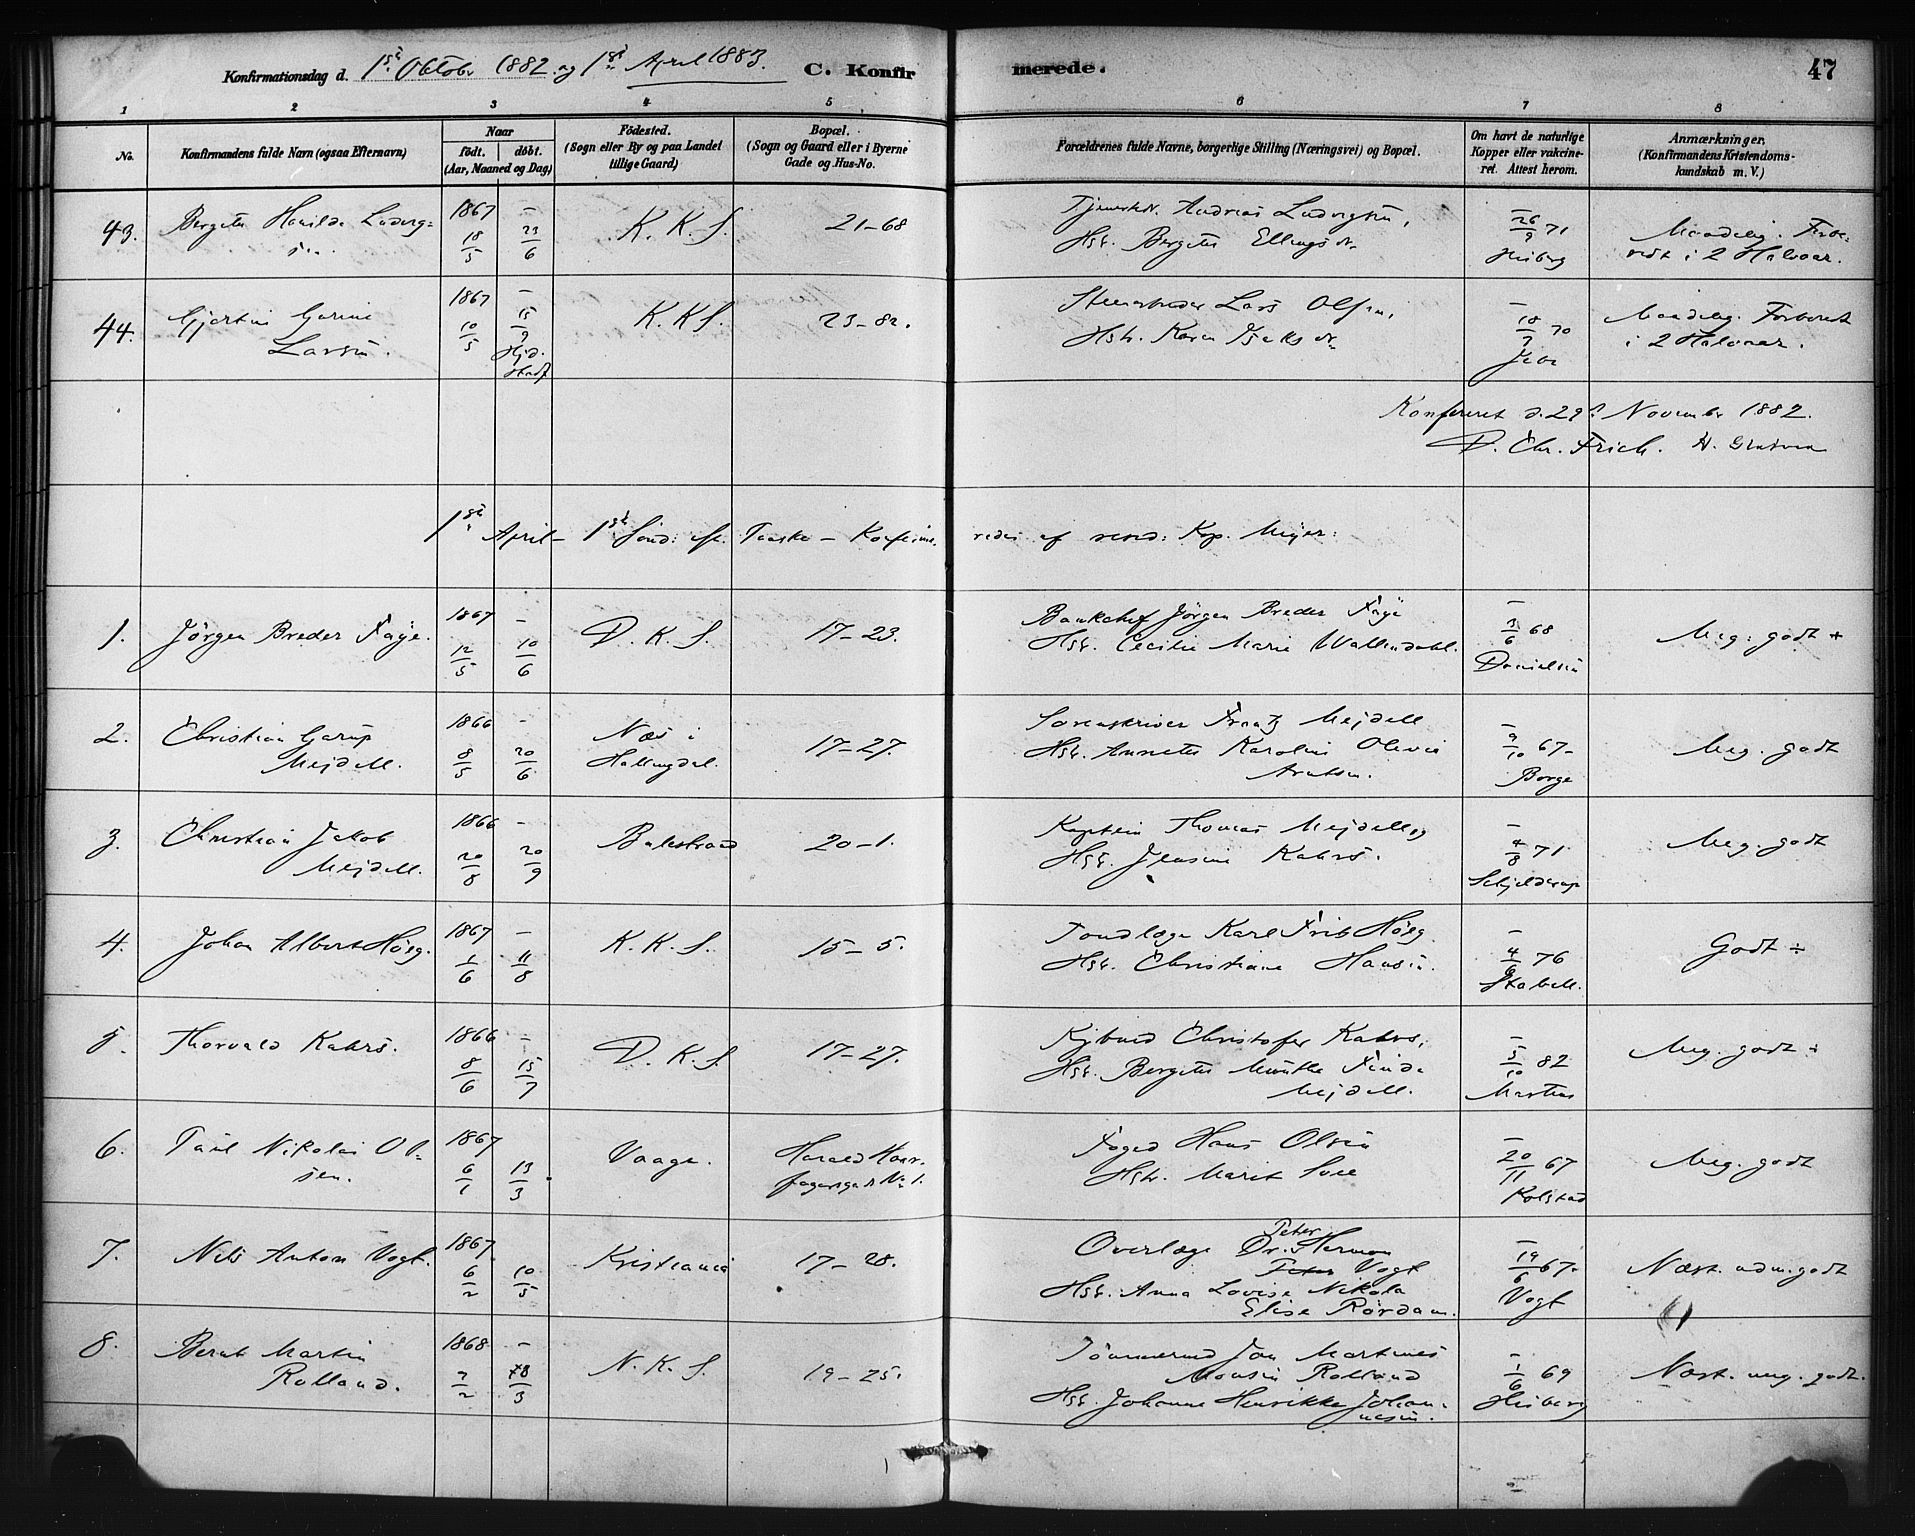 Konfirmationsdag d. 1ste Oktobr 1882 og 1ste April 1883. C. Konfirmerede. 47
1 2 3 4 5 6 7 8
No. Konfirmandens fulde Navn (ogsaa Efternavn)
Naar
födt. döbt.
(Aar, Maaned og Dag)
Födested.
(Sogn eller By og paa Landet
tillige Gaard)
Bopæl.
(Sogn og Gaard eller i Byerne
Gade og Hus-No.
Forældrenes fulde Navne, borgerlige Stilling (Næringsvei) og Bopæl.
Om havt de naturlige
Kopper eller vakcine-
ret. Attest herom.
Anmærkninger.
(Konfirmandens Kristendoms-
kundskab m. V.)
43. 1867 18/5 – 23/6 K. K. S. 21–68
Hst. Bergitte Ellingsdr
26/9 71 Heiberg
i 2 Halvaar.
44. Larsen. 1867 10/5 – 15/9 K. K S. 23–82.
Lars Olsen,
Hst. Karen
– 18/ 70
i 2 Halvaar.
Konfereret d. 29 November 1882.
D. Chr. Frich.
1ste April – 1ste Sönd: eft. Paaske – Konfirme-
redes af resid: Kap. Meyer:
1. Jörgen Breder Faye. 1867 12/5 – 10/6 D. K. S. 17–23.
Bankchef Jörgen Breder Faye
Hst. Cecilie Marie Wallendahl.
– 3/6 68 Danielsen
Meg. godt +
2. Christian Garup
Mejdell. 1866 8/5 – 20/6 Næs i
Hallingdal. 17–27.
Sorenskriver Frantz Mejdell
Hst. Annette Karoline Olivia
Arntsen.
– 9/10 67– Borge
Meg. godt
3. Christian Jakob
Mejdell. 1866 20/8 – 20/9 Balestrand 20–1.
Kaptein Thomas Mejdell og
Hst. Jensine Kahrs.
– 4/8 71 Schjelderup
Meg. godt
4. Johan Albert Höeg. 1867 1/6 – 11/8 K. K. S. 15–5.
Tandlæge Karl Frits Höeg
Hst. Christiane Hansen.
– 4/6 76 Stabell.
Godt ÷
5. Thorvald Kahrs. 1866 8/6 – 15/7 D. K. S. 17–27.
Kjbmd Christofer Kahrs,
Hst. Bergitte Munthe Finde
Mejdell.
– 5/10 82 Martens
Meg. godt ÷
6. Paul Nikolai Ol-
sen. 1867 6/1 13/3 Vaage. Harald Haar-
fagersgade No 1.
Foged Hans Olsen
Hst. Marit
– 20/11 67 Kolstad
Meg. godt
7. Nils Anton Vogt. 1867 6/2 10/5 Kristiania 17–28.
Overlæge Dr. Peter Herman
Peter Vogt
Hst. Anna Lovise Nikola
Elise Rördam.
– 19/6 67– Vogt
Næst. udm. godt
8. Bernt Martin
Rolland. 1868 2/2 – 18/3 N. K. S. 19–25.
Tömmermd Jan Martinus
Monsen Rolland
Hst. Johanne Henrikke Johan-
nesen.
– 1/6 69 Heiberg
Næst. meg. godt.